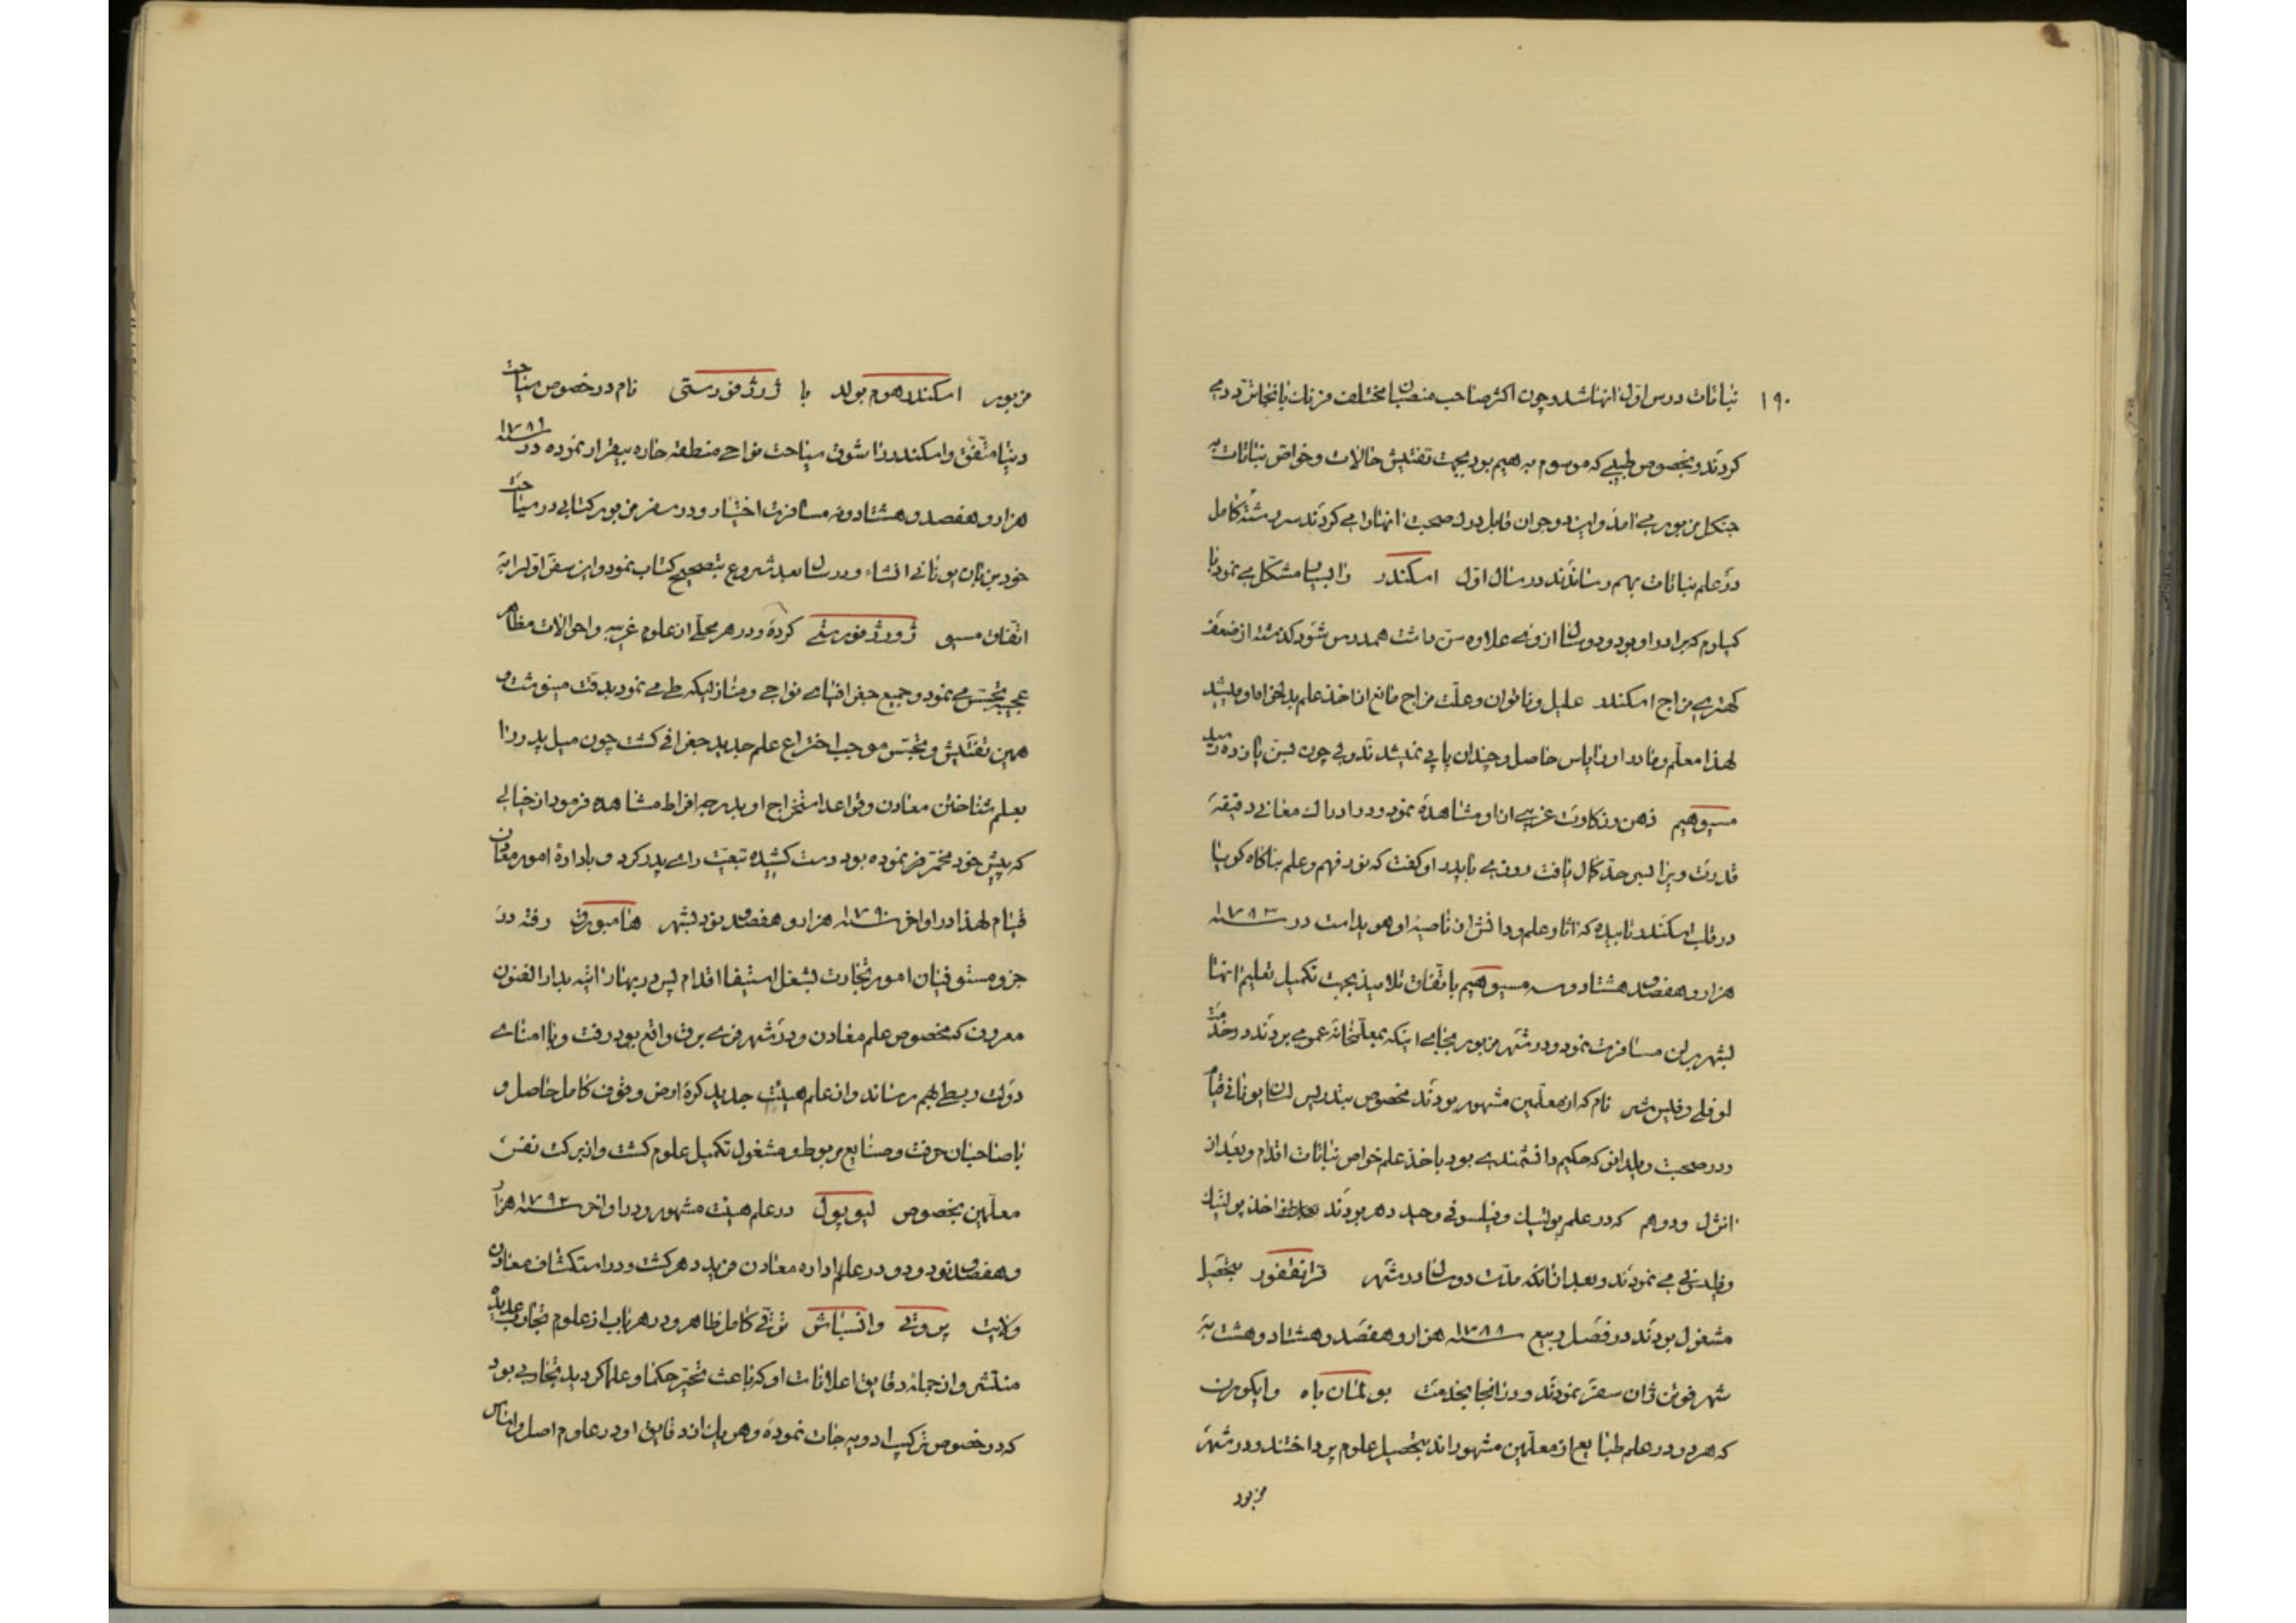 ۱۹۰
نباتات درس اول انها شد و چون اکثر صاحب منصبان مختلف فرزنان بانجا تردد می
کردند و بخصوص طبیبی که موسوم به هیم بود بجهت تفتیش حالات و خواص نباتات به
جنکل مزبور می امد و این دو جوان قابل درک صحبت انها را می کردند سر رشتهٔ کامل
در علم نباتات بهم رساندند در سال اول اسکندر را بسیار مشکل می نمود با
کیلوم که برادر او بود و دو سال از وی علاوه سن داشت همدرس شود گذشته از ضعف
کهتری مزاج اسکندر علیل و ناتوان و علّت مزاج مانع از اخذ علم بدلخواه او میشد
لهذا معلّم و مادر او را یاس حاصل و چندان پاپی نمیشدند ولی چون بسن یازده رسید
مسیو هیم ذهن و ذکاوت غریبی از او مشاهده نمود و در ادراک معانی دقیقه
قدرت ویرا بسر حدّ کمال یافت روزی با پدر او کفت که نور فهم و علم بناکاه کویا
در قلب اسکندر تابیده که اثار علم و دانش از ناصیهٔ او هویداست در سنه ۱۷۸۳
هزار و هفصد و هشتاد و سه مسیو هیم باتفاق تلامیذ بجهت تکمیل تعلیم انها
بشهر برلن مسافرت نمود و در شهر مزبور بجای اینکه بمعلّمخانه عمومی بردند در خدمت
لوفلی و فلیس مشر نام که از معلّمین مشهور بودند مخصوص بتدریس لسان یونانی قیام
و در صحبت ویلدانو که حکیم دانشمندی بود باخذ علم خواص نباتات اقدام و بعد از ان
انژل و دوهم که در علم پولتیک و فیلسوفی وحید دهر بودند اخذ پولتیک
و فیلسوفی می نمودند و بعد از انکه مدّت دو سال در شهر فرانقفور بتحصیل
مشغول بودند در فصل ربیع سنه ۱۷۸۸ هزار و هفصد و هشتاد و هشت به
شهر غوتن ژان سفر نمودند و در انجا بخدمت بولمنان باه و ایکورن
که هر دو در علم طبایع از معلّمین مشهور اند بتحصیل علوم پرداختند و در شهر
مزبور
مزبور اسکندر هوم بولد با ژورژ فورستی نام در خصوص سیاحت
دنیا متّفق و اسکندر را شوق سیاحت نواحی منطقه حاره بیقرار نموده در سنه ۱۷۸۹
هزار و هفصد و هشتاد و نه مسافرت اختیار و در سفر مزبور کتابی در سیاحت
خود بزبان یونانی انشاء و در سال بعد شروع بتصحیح کتاب نمود و این سفر اول را به
اتفاق مسیو ژورژ فورستی کرده و در هر محلّ از علوم غریبه و احوالات مظاهر
عجیبه تجسّس می نمود و جمیع جغرافیای نواحی و منازلیکه طی می نمود بدقت مینوشت و
همین تفتیش و تجسّس موجب اختراع علم جدید جغرافی کشت چون میل پدر را
بعلم شناختن معادن و قواعد استخراج او بدرجه افراط مشاهده فرمود از خیالی
که پیش خود مخمّر نموده بود دست کشیده تبعیّت رای پدر کرد و بادارهٔ امور معادن
قیام لهذا در اواخر سنه ۱۷۹۰ هزار و هفصد و نود بشهر هامبورق رفته در
جزو مستوفیان امور تجارت بشغل استیفا اقدام پس در بهار اتیه بدار الفنون
معروف که مخصوص علم معادن و در شهر فری برق واقع بود رفت و با امنای
دولت ربطی بهم رساند و از علم هیئت جدید کرهٔ ارض وقوف کامل حاصل و
با صاحبان حرفت و صنایع مربوط و مشغول تکمیل علوم کشت و از برکت نفس
معلّمین بخصوص لیوپول در علم هیئت مشهور و در اواخر سنه ۱۷۹۲ هزار
و هفصد و نود و دو در علم اداره معادن فرید دهر کشت و در استکشاف معادن
ولایت پروتی و انسباش ترقی کامل ظاهر و در هر باب از علوم تجارب عدیده
منتشر و از جمله دقایق اعلانات او که باعث تحیّر حکما و علما کردید تجاربی بود
که در خصوص ترکیب ادویه جات نموده و هر یک از دقایق او در علوم اصل و اساس